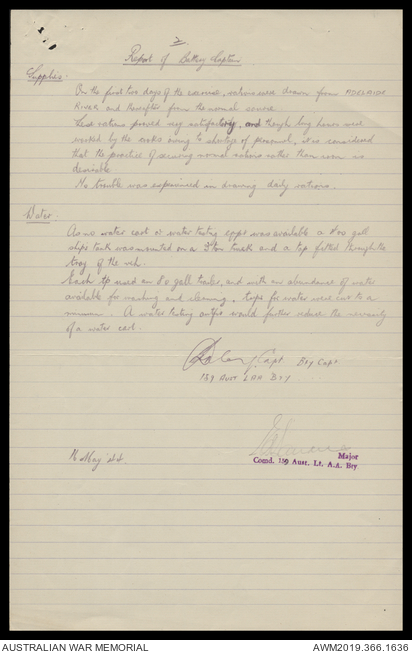 2
Report of Battery Captain
Supplies.
On the first two days of the exercise, rations were drawn from ADELAIDE
RIVER and thereafter from the normal source.
These rations proved very satisfactory, and though long hours were
worked by the cooks owing to shortage of personnel, it is considered
that the practice of issuing normal rations rather than was
desirable
No trouble was experienced in drawing daily rations.
Water.
As no water cart or water testing eqpt was available a 400 gall
ships tank was mounted on a 3 ton truck and a tap fitted through the
tray of the veh.
Each tp used an 80 gall trailer, and with an abundance of water
available for washing and cleaning, trips for water were cut to a
minimum. A water testing outfit would further reduce the necessity
of a water cart.
Capt Bty Capt.
159 Aust LAA Bty.
16 May '44.
Major
Comd. 159 Aust. Lt. A.A. Bty
AUSTRALIAN WAR MEMORIAL
AWM2019.366.1636